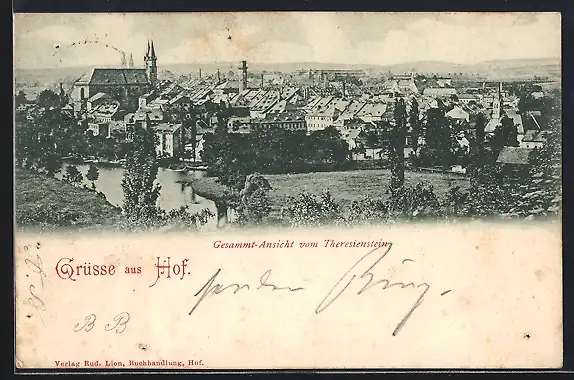 Gesammt-Ansicht vom Theresienstein
Grüsse aus Hof.
B B
Verlag Rud. Lion, Buchhandlung, Hof.